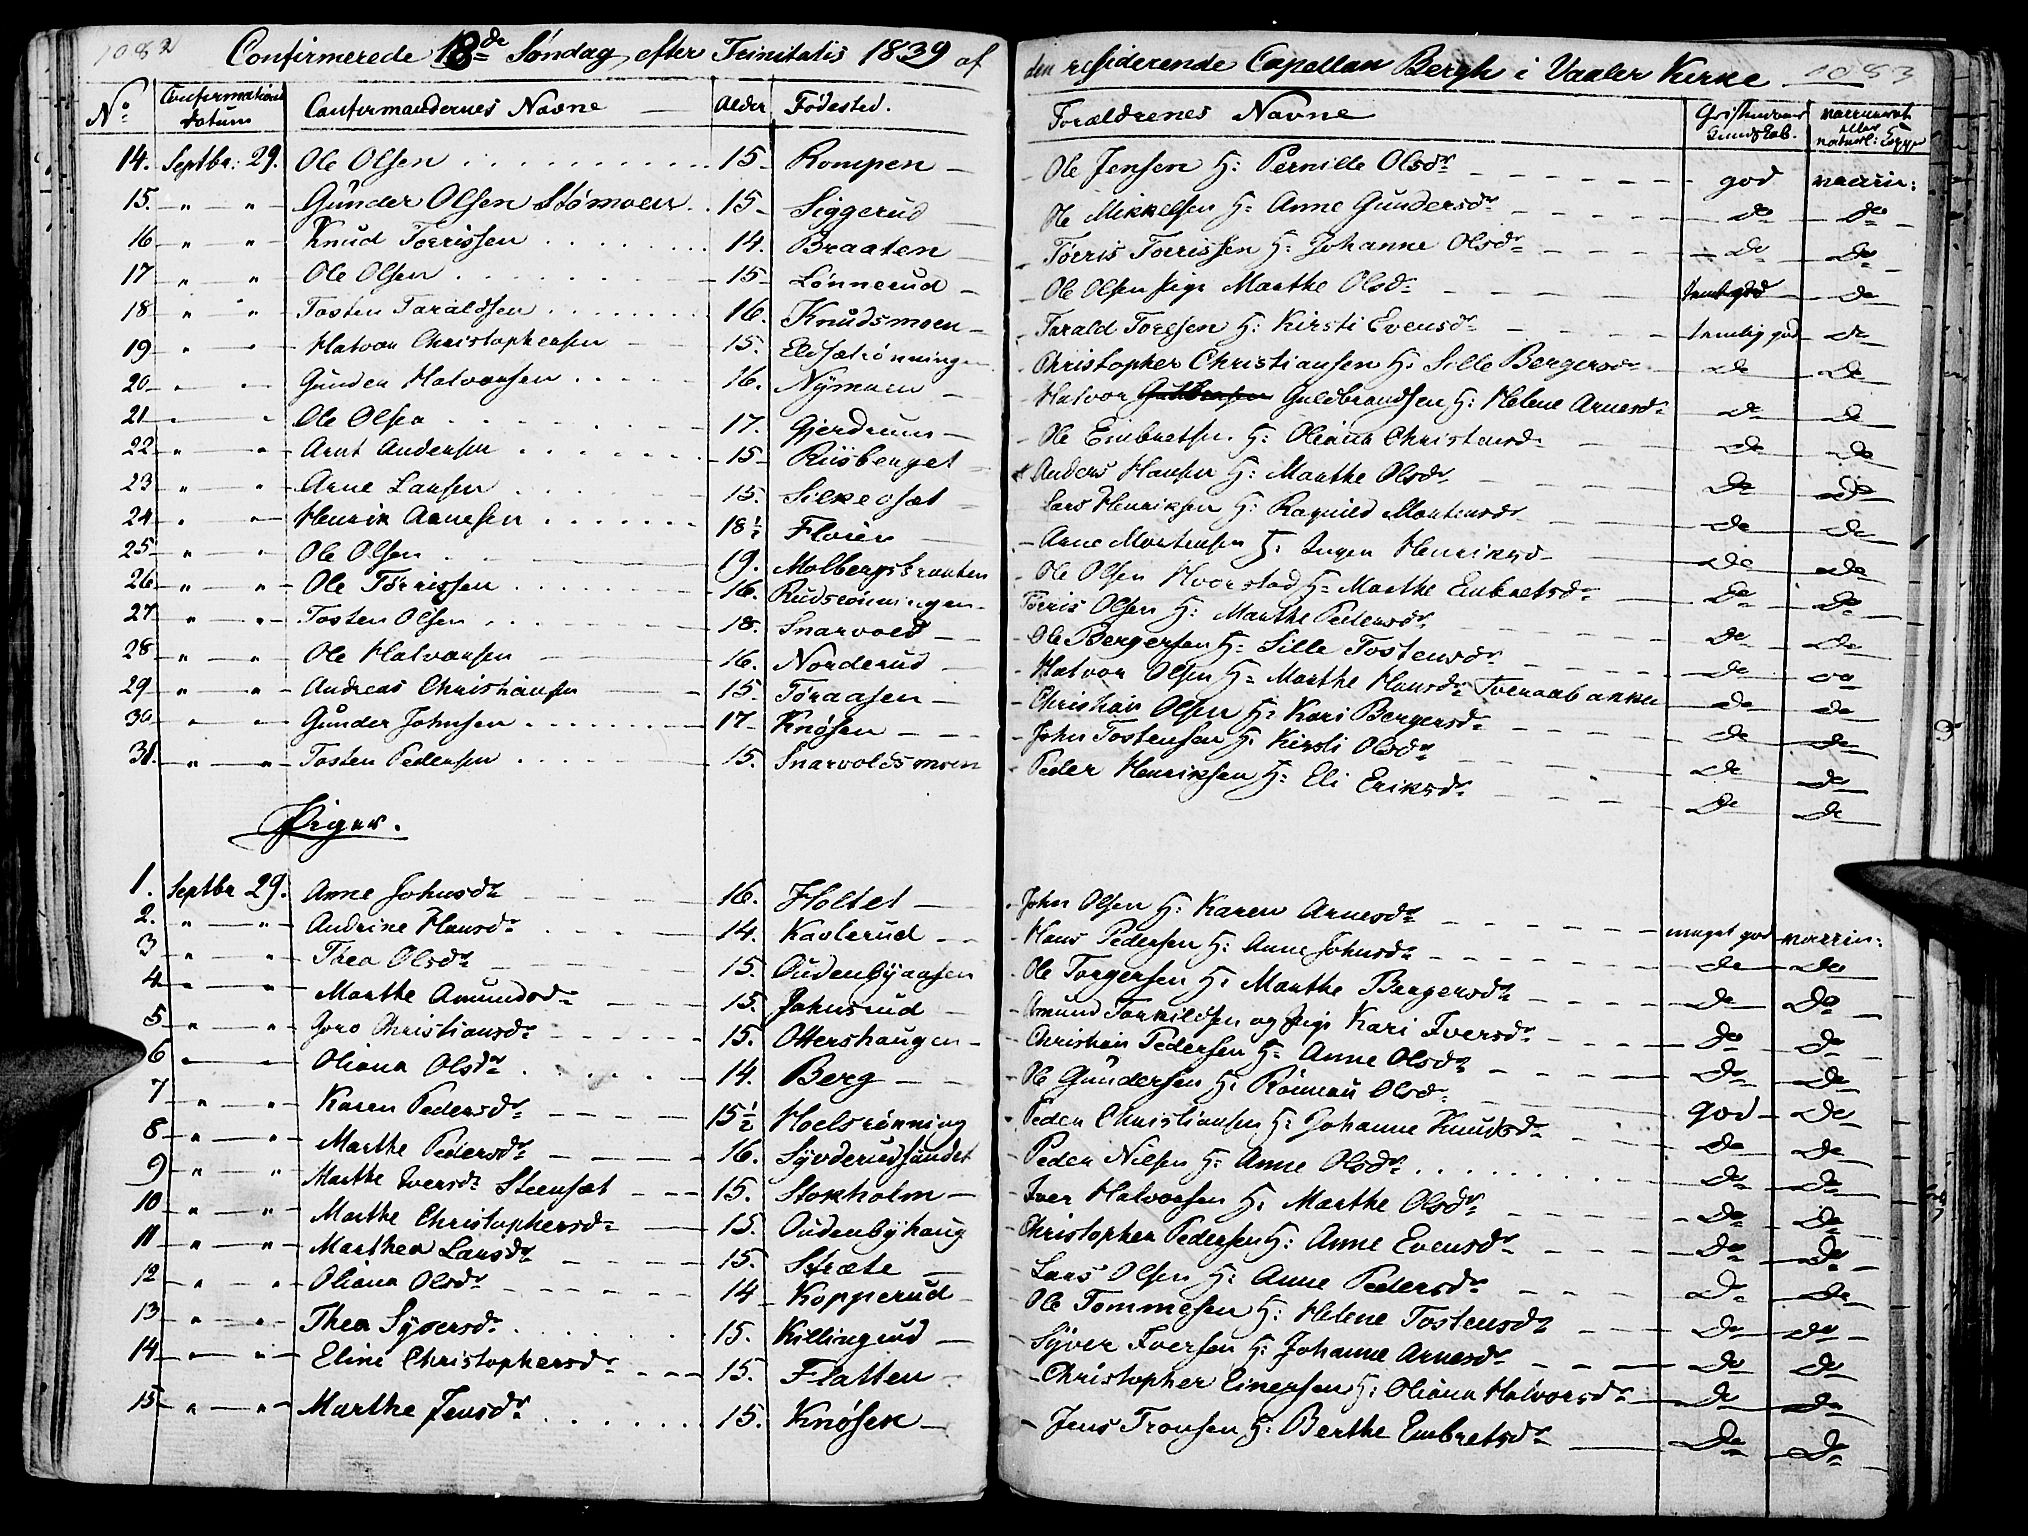 1082
Confirmerede 18de Søndag efter Trinitatis 1839 af
den residerende Capellan Bergh i Vaaler Kirke
1083
No Confirmations datum Confirmandernes Navne Alder Fødested. Forældrenes Navne Christendoms Kundskab. vaccineret eller naturl: Kopper
14. Septbr: 29. Ole Olsen 15 Rompen Ole Jensen H: Pernille Olsdr god vaccin:
15. " " Gunder Olsen Stømoen 15 Siggerud Ole Mikkelsen H: Anne Gundersdr Do Do
16 " " Knud Torrissen 14. Braaten Törris Torrissen H: Johanne Olsdr Do Do
17 " " Ole Olsen 15 Lönnerud Ole Olsen pige Marthe Olsdr Do
18 " " Tosten Taraldsen 16. Knudsmoen Tarald Toresen H: Kirsti Evensdr temlig god Do
19 " " Halvor Christophersen 15. Christopher Christiansen H: Sille Bergersdr Do Do
20 " " Gunder Halvorsen 16. Nÿmoen Halvor Guldbrandsen H: Helene Arnesdr Do Do
21 " " Ole Olsen 17. Gjerdrum Ole Embretsen H: Oliana Christensdr Do Do
22 " " Arnt Andersen 15 Riisberget Anders Hansen H: Marthe Olsdr Do Do
23 " " Arne Larsen 15. Silkeosæt Lars Henriksen H: Ragnild Mortensdr Do Do
24 " " Henrik Arnesen 18½ Floien Arne Mortensen H: Ingen Henriksdr Do Do
25 " " Ole Olsen 19. Molbergsbraaten Ole Olsen Hvorstad H: Marthe Embretsdr Do Do
26 " " Ole Törrissen 16. Rudsrönningen Törris Olsen H: Marthe Pedersdr Do Do
27 " " Tosten Olsen 18. Snarvold Ole Bergersen H: Sille Tostensdr Do Do
28 " " Ole Halvorsen 16. Norderud Halvor Olsen H: Marthe Hansdr Tveraabakken Do Do
29 " " Andreas Christiansen 15. Toraasen Christian Olsen H: Kari Bergersdr Do Do
30 " " Gunder Johnsen 17 Knøsen John Tostensen H: Kirsti Olsdr Do Do
31. " " Tosten Pedersen 15. Snarvoldsmoen Peder Henriksen H: Eli Eriksdr Do Do
Piger.
1. Septbr 29. Anne Johnsdr 16. Holtet John Olsen H: Karen Arnesdr meget god vaccin:
2. " " Andrine Hansdr 14. Kavlerud Hans Pedersen H: Anne Johnsdr Do Do
3 " " Thea Olsdr 15. Oudenbÿaasen Ole Torgersen H: Marthe Bergersdr Do Do
4 " " Marthe Amundsdr 15. Jahnsrud Amund Torkildsen og Pige Kari Iversdr Do Do
5 " " Goro Christiansdr 15. Ottershaugen Christian Pedersen H: Anne Olsdr Do Do
6 " " Oliana Olsdr 14. Berg Ole Gundersen H: Rönnau Olsdr god Do
7 " " Karen Pedersdr 15½ Hoelsrønning Peder Christiansen H: Johanne Knudsdr Do Do
8 " " Marthe Pedersdr 16. Sÿvderudsundet Peder Nilsen H: Anne Olsdr Do Do
9 " " Marthe Iversdr Steensæt 15. Stokholm Iver Halvorsen H: Marthe Olsdr Do Do
10 " " Marthe Christophersdr 15. Oudenbÿhaug Christopher Pedersen H: Anne Evensdr Do Do
11 " " Marthea Larsdr 15. Stræte Lars Olsen H: Anne Pedersdr Do Do
12 " " Oliana Olsdr 14 Kopperud Ole Tommesen H: Helene Tostensdr Do Do
13 " " Thea Sÿversdr 15. Killingrud Sÿver Iversen H: Johanne Arnesdr Do Do
14 " " Eline Christophersdr 15. Flatten Christopher Einersen H: Oliana Halvorsdr Do Do
15 " " Marthe Jensdr 15. Knøsen Jens Tronsen H: Berthe Embretsdr Do Do